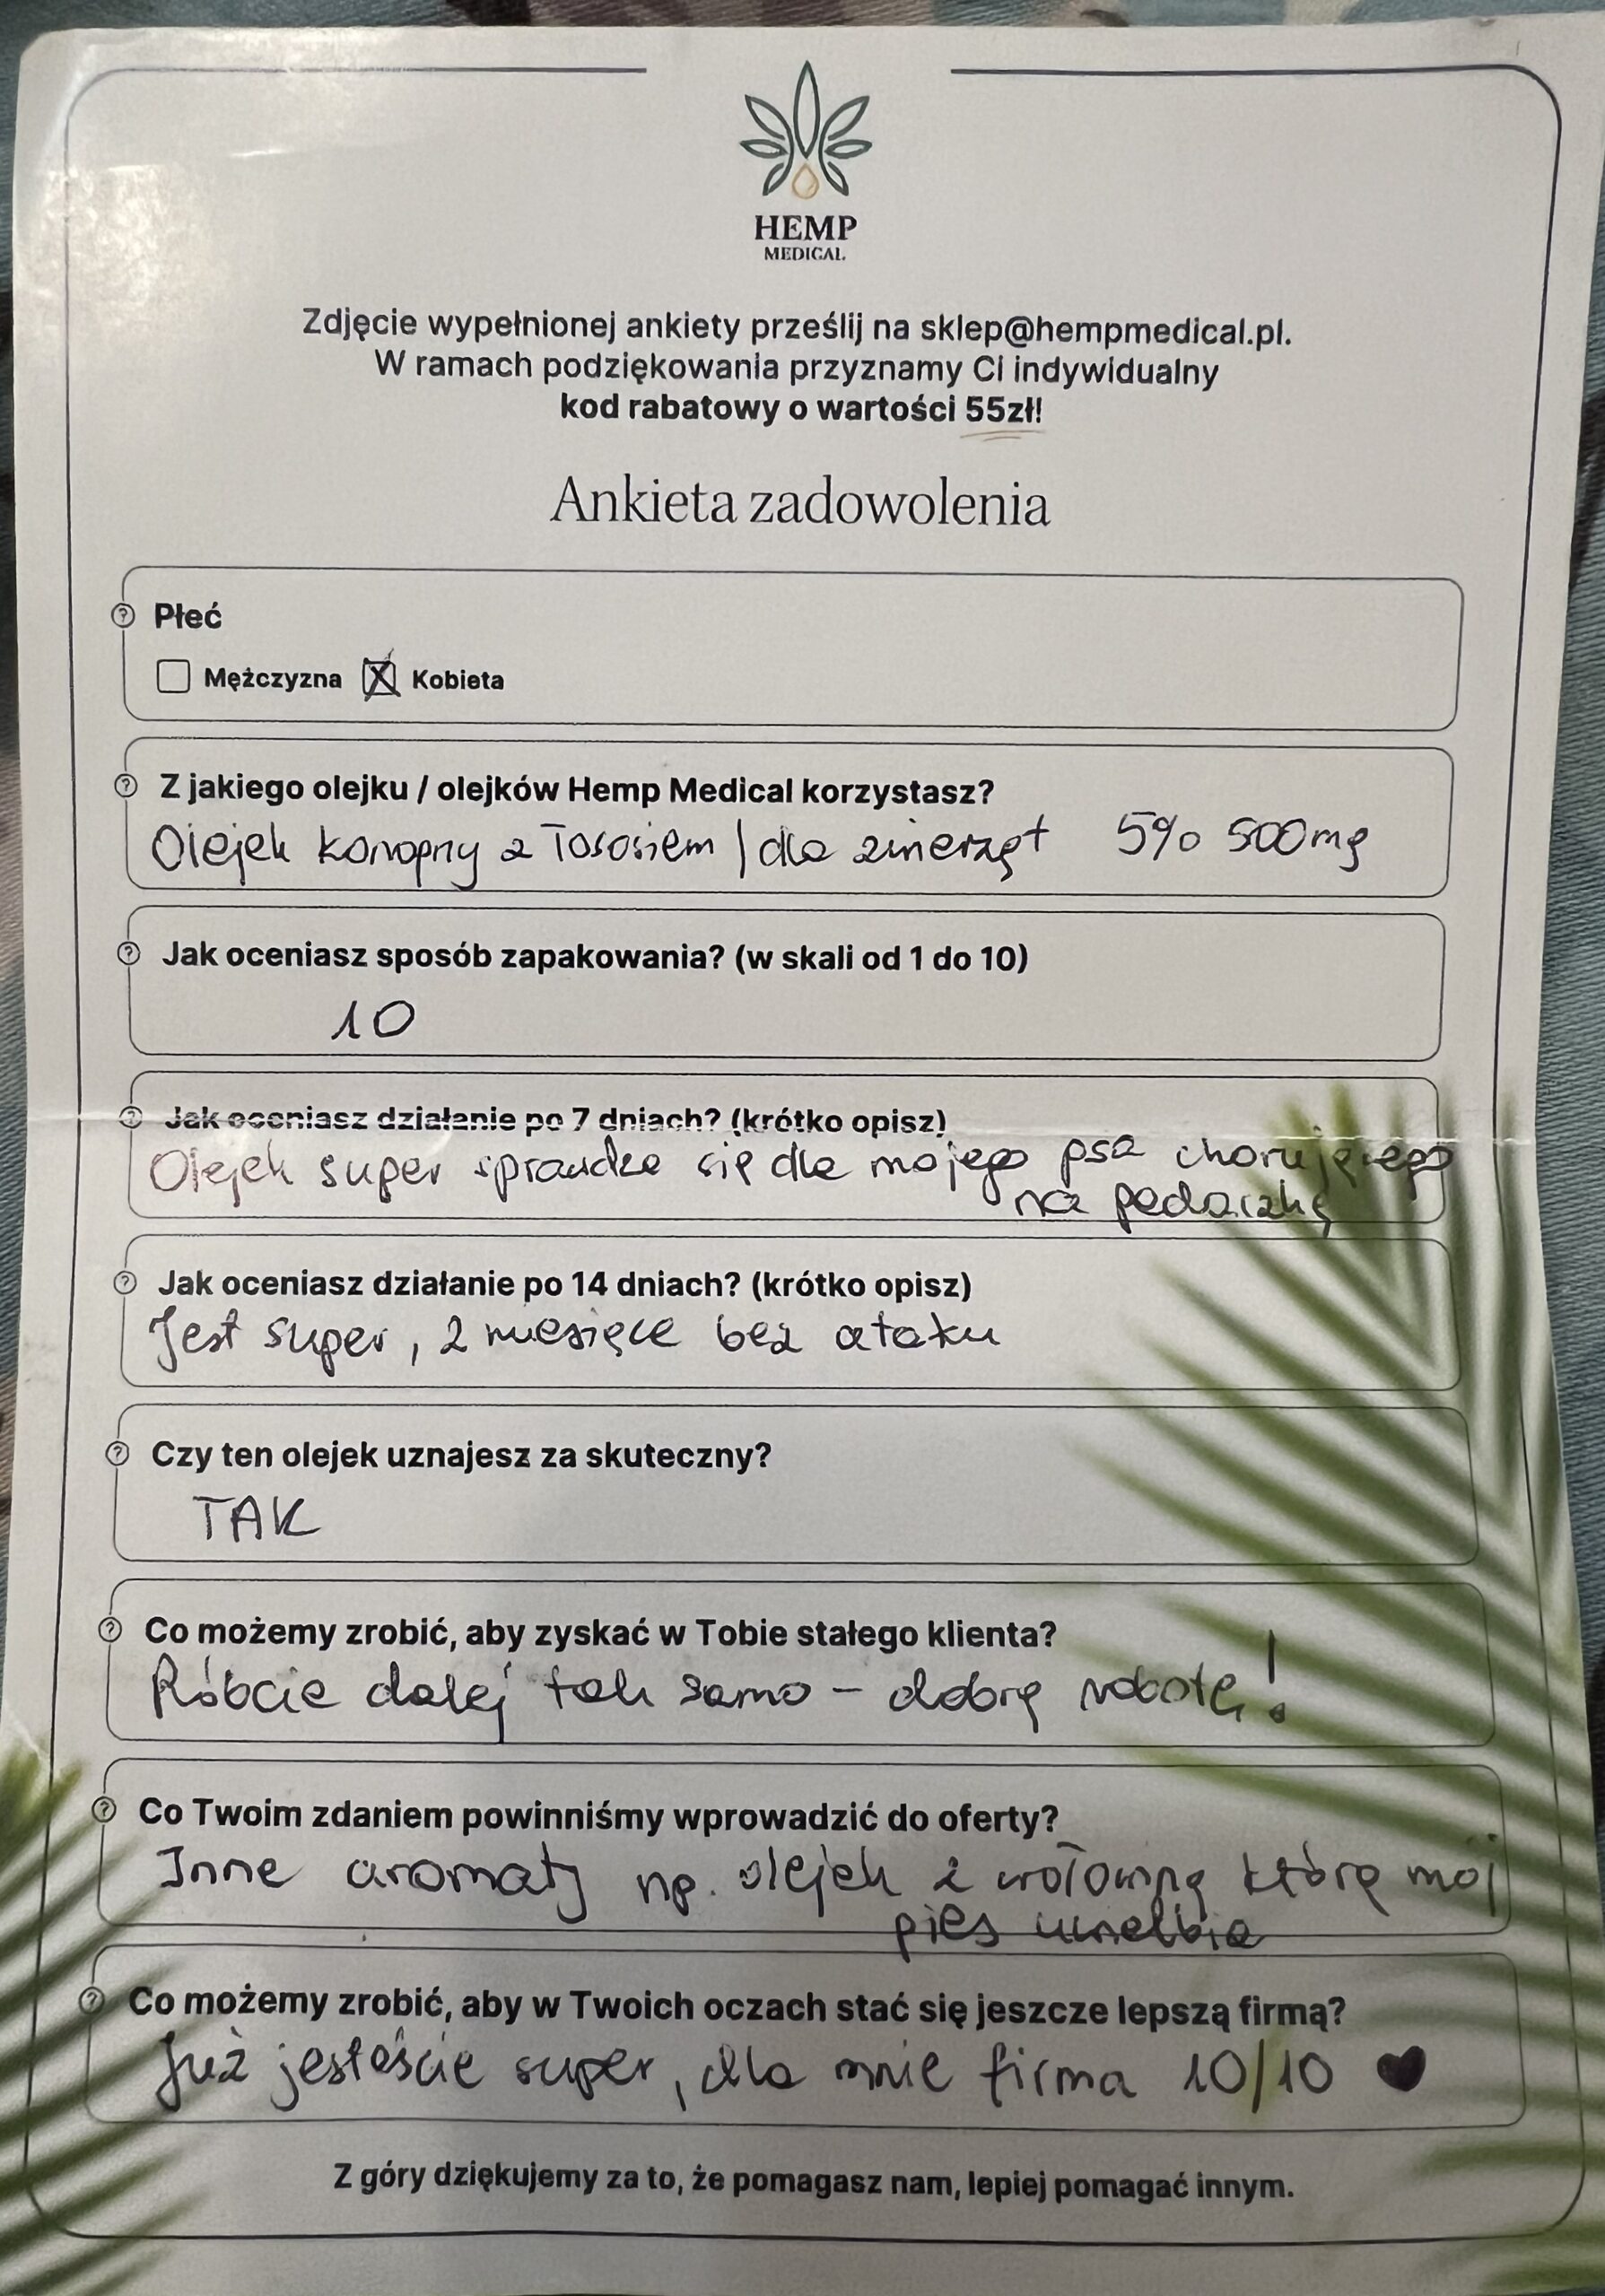 HEMP
MEDICAL
Zdjęcie wypełnionej ankiety prześlij na sklep@hempmedical.pl.
W ramach podziękowania przyznamy Ci indywidualny
kod rabatowy o wartości 55zł!
Ankieta zadowolenia
Płeć
Mężczyzna X Kobieta
Z jakiego olejku / olejków Hemp Medical korzystasz?
Olejek konopny z łososiem / dla zwierząt 5% 500mg
Jak oceniasz sposób zapakowania? (w skali od 1 do 10)
10
Jak oceniasz działanie po 7 dniach? (krótko opisz)
Olejek super sprawdza się dla mojego psa chorującego
na padaczkę
Jak oceniasz działanie po 14 dniach? (krótko opisz)
Jest super, 2 miesiące bez ataku
Czy ten olejek uznajesz za skuteczny?
TAK
Co możemy zrobić, aby zyskać w Tobie stałego klienta?
Róbcie dalej tak samo - dobrą robotę!
Co Twoim zdaniem powinniśmy wprowadzić do oferty?
Inne aromaty np. olejek z wołowiną którą mój
pies uwielbia
Co możemy zrobić, aby w Twoich oczach stać się jeszcze lepszą firmą?
Już jesteście super, dla mnie firma 10/10 ♥
Z góry dziękujemy za to, że pomagasz nam, lepiej pomagać innym.